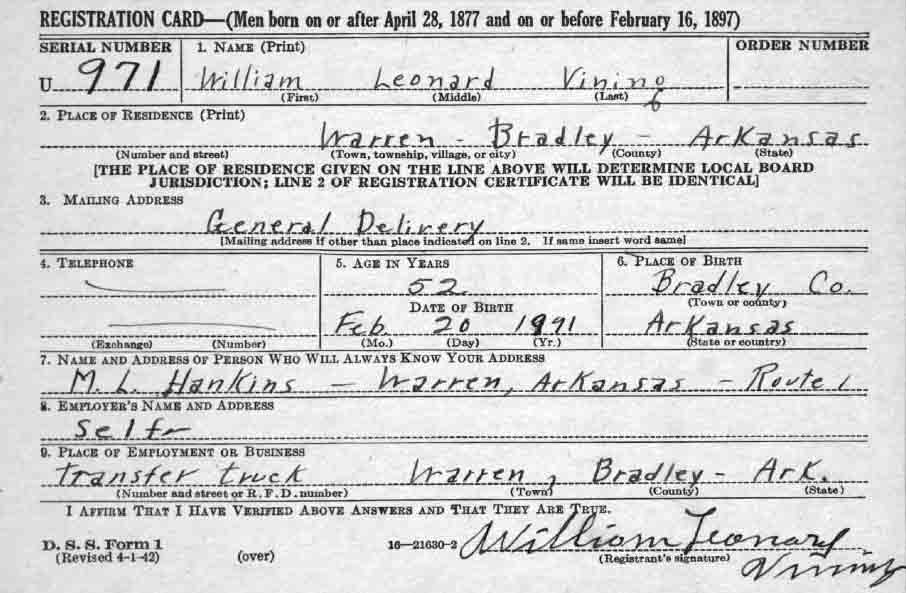 REGISTRATION CARD—(Men born on or after April 28, 1877 and on or before February 16, 1897)
SERIAL NUMBER 1. NAME (Print) ORDER NUMBER
U 971 William Leonard Vining
(First) (Middle) (Last)
2. PLACE OF RESIDENCE (Print)
Warren - Bradley - Arkansas
(Number and street) (Town, township, village, or city) (County) (State)
[THE PLACE OF RESIDENCE GIVEN ON THE LINE ABOVE WILL DETERMINE LOCAL BOARD
JURISDICTION; LINE 2 OF REGISTRATION CERTIFICATE WILL BE IDENTICAL]
3. MAILING ADDRESS
General Delivery
[Mailing address if other than place indicated on line 2. If same insert word same]
4. TELEPHONE 5. AGE IN YEARS 6. PLACE OF BIRTH
52 Bradley Co.
DATE OF BIRTH (Town or county)
Feb 20 1891 Arkansas
(Exchange) (Number) (Mo.) (Day) (Yr.) (State or country)
7. NAME AND ADDRESS OF PERSON WHO WILL ALWAYS KNOW YOUR ADDRESS
M. L. Hankins - Warren, Arkansas - Route 1
8. EMPLOYER'S NAME AND ADDRESS
Self
9. PLACE OF EMPLOYMENT OR BUSINESS
Transfer truck Warren, Bradley - Ark.
(Number and street or R. F. D. number) (Town) (County) (State)
I AFFIRM THAT I HAVE VERIFIED ABOVE ANSWERS AND THAT THEY ARE TRUE.
D. S. S. Form 1
(Revised 4-1-42) (over) 16—21630-2 William Leonard
(Registrant's signature)
Vining